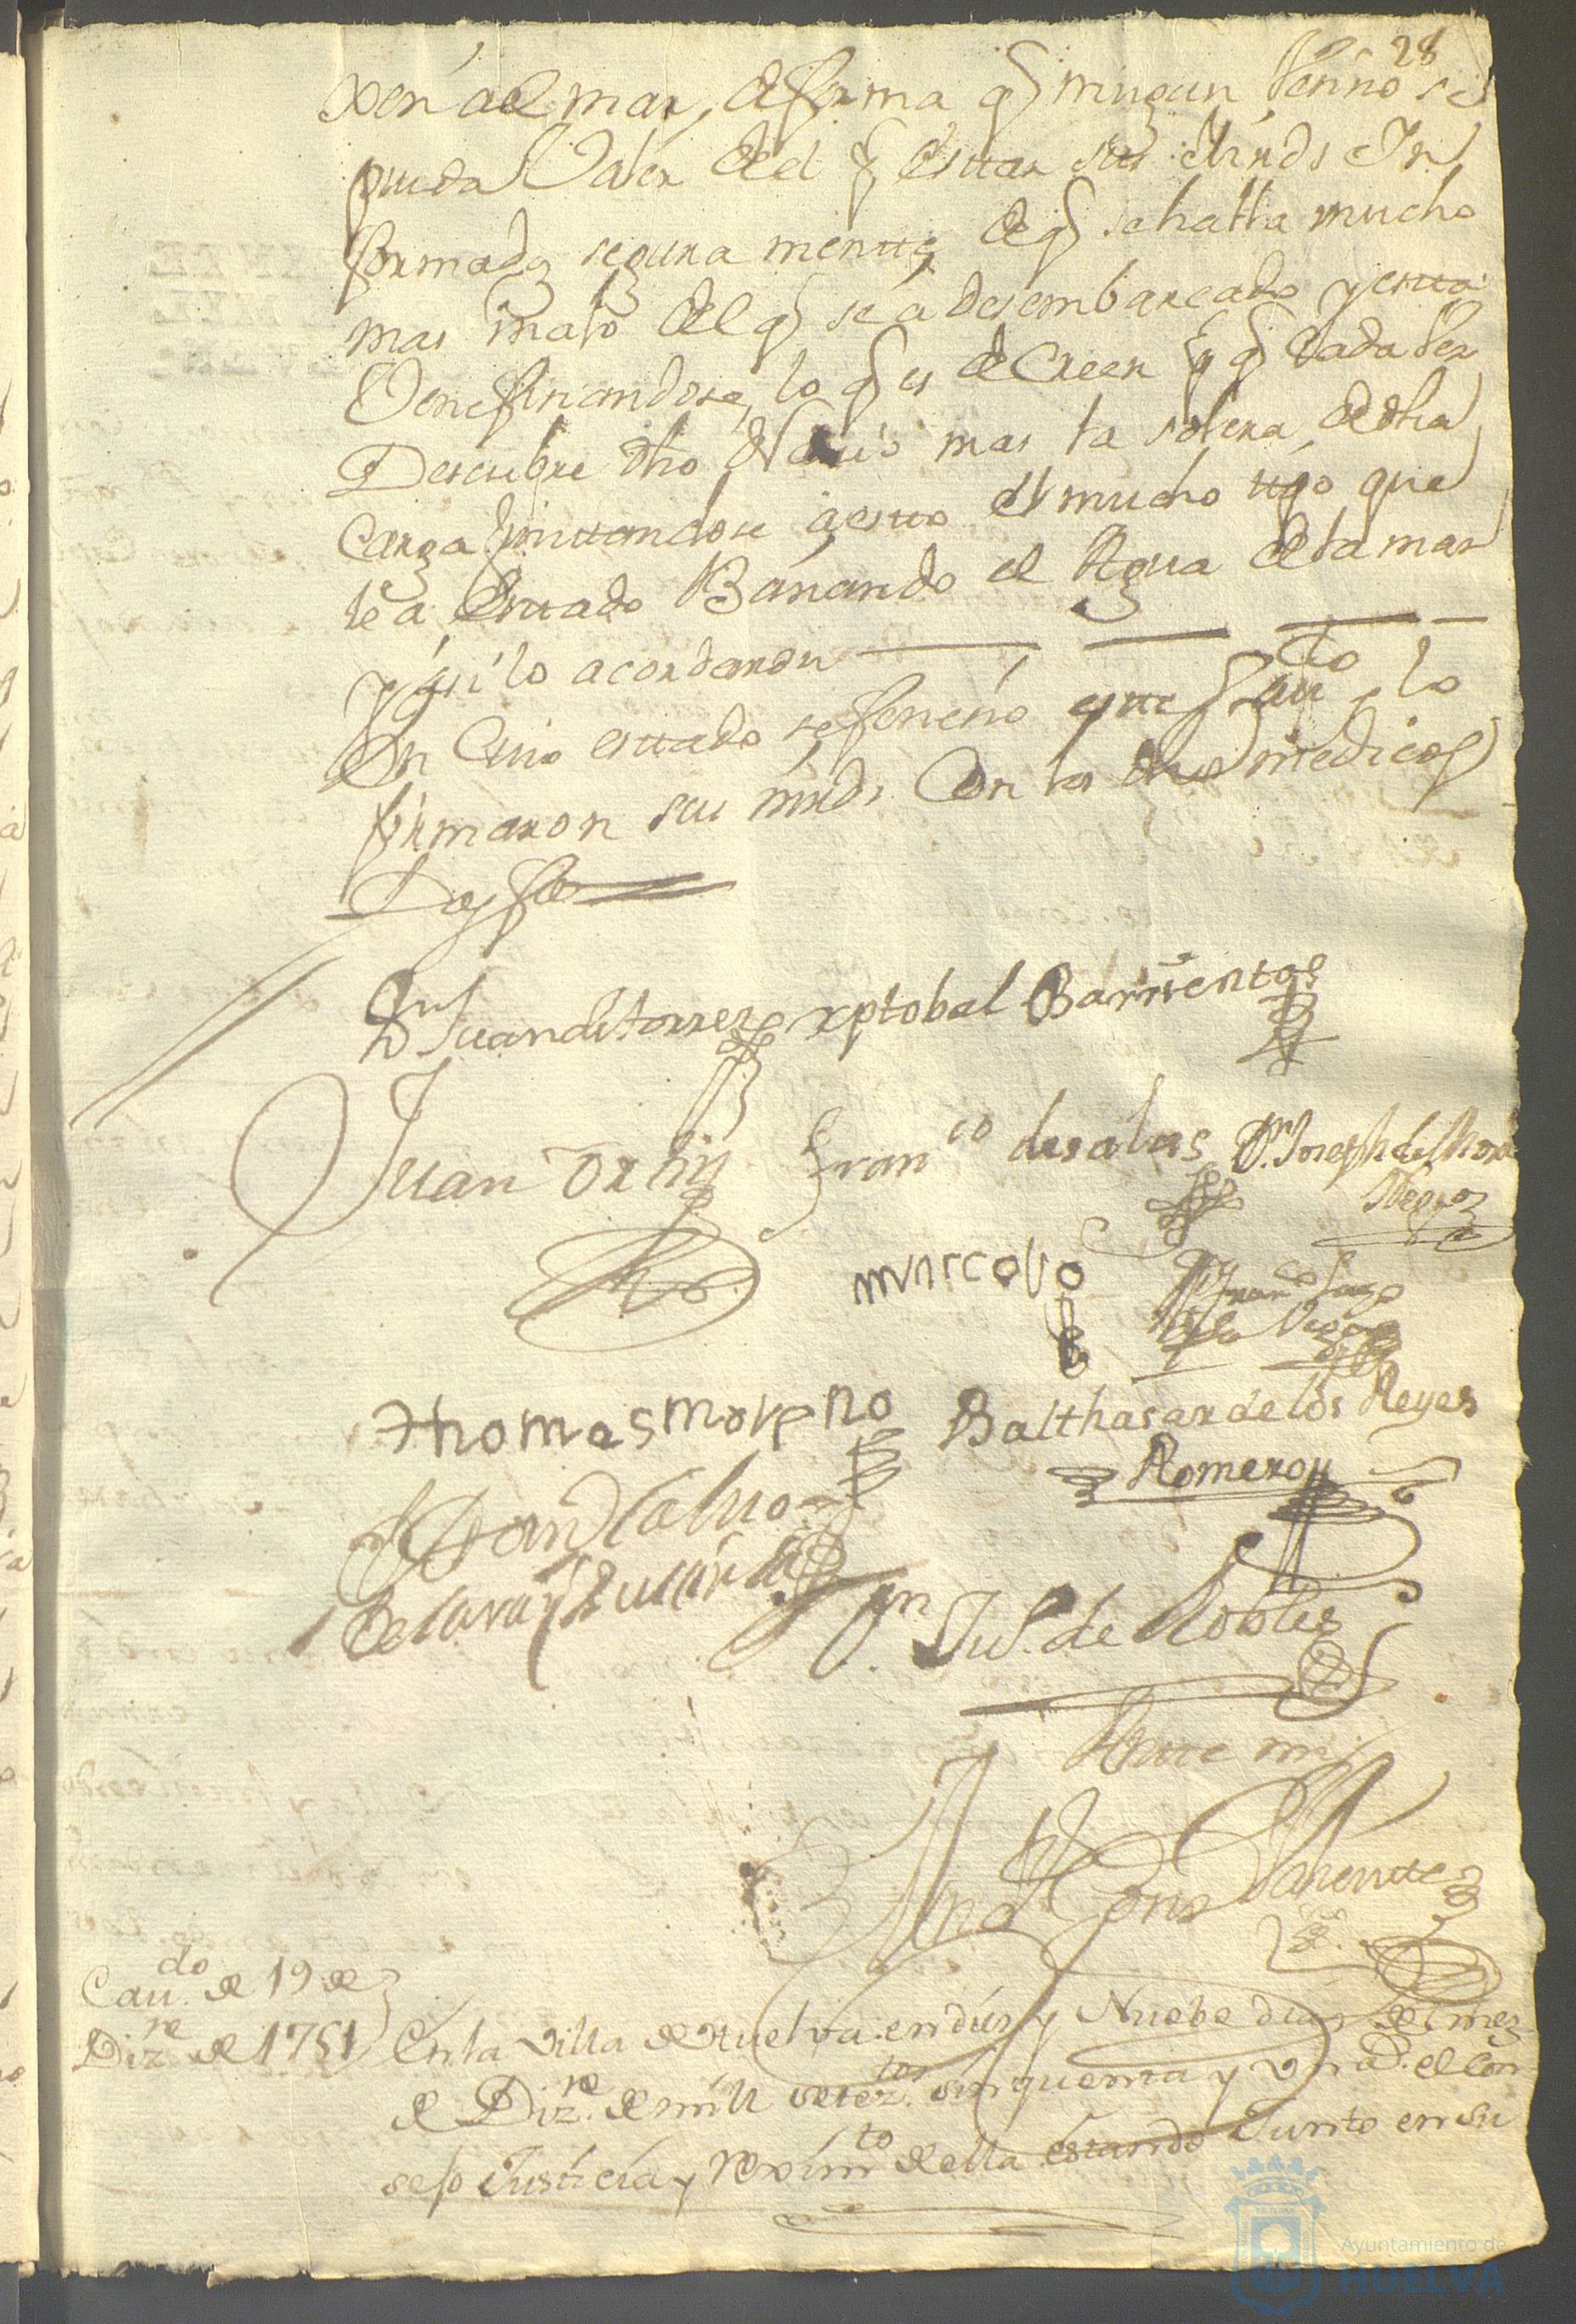 28
xen al mar, de forma q ningun vezino se
pueda Valer del q estar sus Mrds In
formados segura mentte, de q se halla mucho
mas malo del q se a desembarcado y esta
Veneficiandose, lo q es de Creer q q Cada vez
Descubre dho Navio mas la solera de dha
Carga juntandose a esto el mucho tigo que
le a Estado Bañando el Agua de la mar
y asi lo acordaron
En Cuio esttado se feneció este Cauto, lo
firmaron sus mrds. Con los dhos medicos
Doy fee
Dn Juan de torres xptobal Barrientos
Juan Ortiz Franco de salas Dn Joseph de Mora
Negro
marcos Dn Franco Lazo
de la Vega
thomas moreno Balthasar de los Reyes
Romero
Juan Calvo
de lara y
Dn Ju. de Robles
Antte mi
Caudo de 19 de
Dizre de 1751 En la Villa de Huelva en diez y Nuebe dias del mez
de Dizre. de mill setezto. sinquenta y un as. el Con
sejo Justicia y Reximto de ella estando Junto en su
Ayuntamiento de
HUELVA